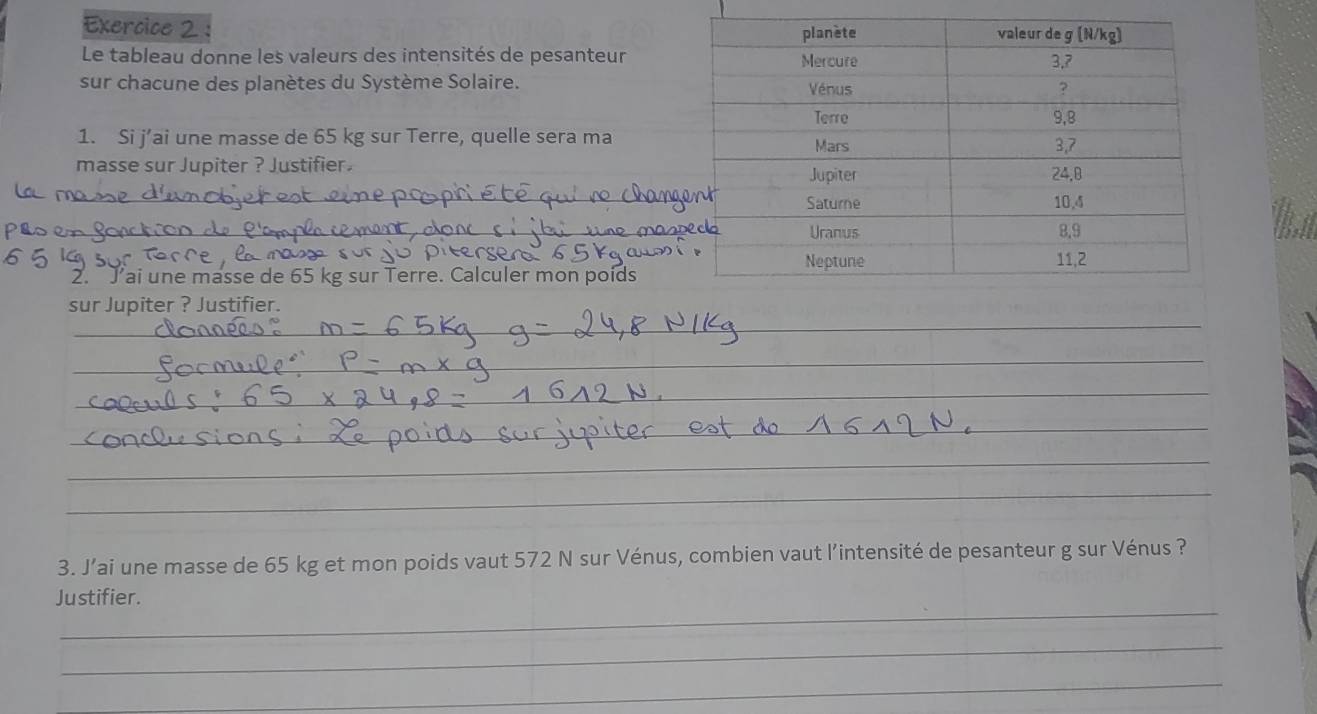 Exercice 2 :
Le tableau donne les valeurs des intensités de pesanteur
sur chacune des planètes du Système Solaire.
planète valeur de g (N/kg)
Mercure 3,7
Vénus ?
Terre 9,8
Mars 3,7
Jupiter 24,8
Saturne 10,4
Uranus 8,9
Neptune 11,2
1. Si j'ai une masse de 65 kg sur Terre, quelle sera ma
masse sur Jupiter ? Justifier.
la masse d'un objet est une propriété qui ne changent
pas en fonction de l'amplacement, donc si j'ai une masse de
65 kg sur Terre, la masse sur jupiter sera 65 kg aussi.
2. J'ai une masse de 65 kg sur Terre. Calculer mon poids
sur Jupiter ? Justifier.
données : m = 65 kg g = 24,8 N/Kg
formule : P = m x g
calculs : 65 x 24,8 = 1612 N.
conclusions : Le poids sur jupiter est de 1612 N.
3. J'ai une masse de 65 kg et mon poids vaut 572 N sur Vénus, combien vaut l'intensité de pesanteur g sur Vénus ?
Justifier.